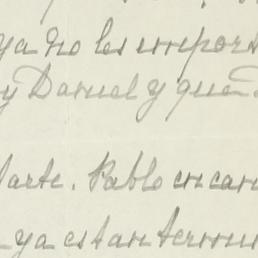 ya no les import
y Daniel y que
arte. Pablo encar
ya estan termin